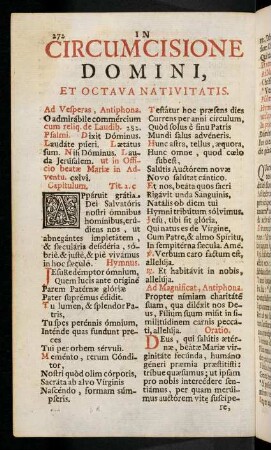 272 IN
CIRCUMCISIONE
DOMINI,
ET OCTAVA NATIVITATIS.
Ad Vesperas, Antiphona.
O admirábile commércium
cum reliq. de Laudib. 282.
Psalmi. Dixit Dóminus.
Laudáte púeri. Lætatus
sum. Nisi Dóminus. Lau-
da Jerúsalem. ut in Offi-
cio beatæ Mariæ in Ad-
ventu. cxlvi.
Capitulum. Tit. 2. c
APpáruit grátia
Dei Salvatóris
nostri ómnibus
homínibus, eru-
diens nos, ut
abnegántes impietátem,
& sæculária desidéria, só-
briè, & justè, & piè vivámus
in hoc sǽculo. Hymnus.
Jesu Redémptor ómnium,
Quem lucis ante oríginem
Parem Patérnæ glóriæ
Pater suprémus édidit.
Tu lumen, & splendor Pa-
tris,
Tu spes perénnis ómnium,
Inténde quas fundunt pre-
ces
Tui per orbem sérvuli.
Meménto, rerum Cóndi-
tor,
Nostri quòd olim córporis,
Sacráta ab alvo Vírginis
Nascéndo, formam súm-
pseris.
Testátur hoc præsens dies
Currens per anni círculum,
Quòd solus è sinu Patris
Mundi salus advéneris.
Hunc astra, tellus, æquora,
Hunc omne, quod cœlo
subest,
Salútis Auctórem novæ
Novo salútat cántico.
Et nos, beáta quos sacri
Rigávit unda Sánguinis,
Natális ob diem tui
Hymni tribútum sólvimus.
Jesu, tibi sit glória,
Qui natus es de Vírgine,
Cum Patre, & almo Spíritu,
In sempitérna sǽcula. Amé.
℣. Verbum caro factum est,
allelúja.
℟. Et habitávit in nobis,
allelúja.
Ad Magnificat, Antiphona.
Propter nímiam charitáté
suam, qua diléxit nos De-
us, Fílium suum misit in si-
militúdinem carnis peccá-
ti, allelúja. Oratio.
DEus, qui salútis ætér-
næ, beátæ Maríæ vir-
ginitáte fecúnda, humáno
géneri prǽmia præstitísti:
tríbue quǽsumus; ut ipsam
pro nobis intercédere sen-
tiámus, per quam merúi-
mus auctórem vitæ suscípe-
re,